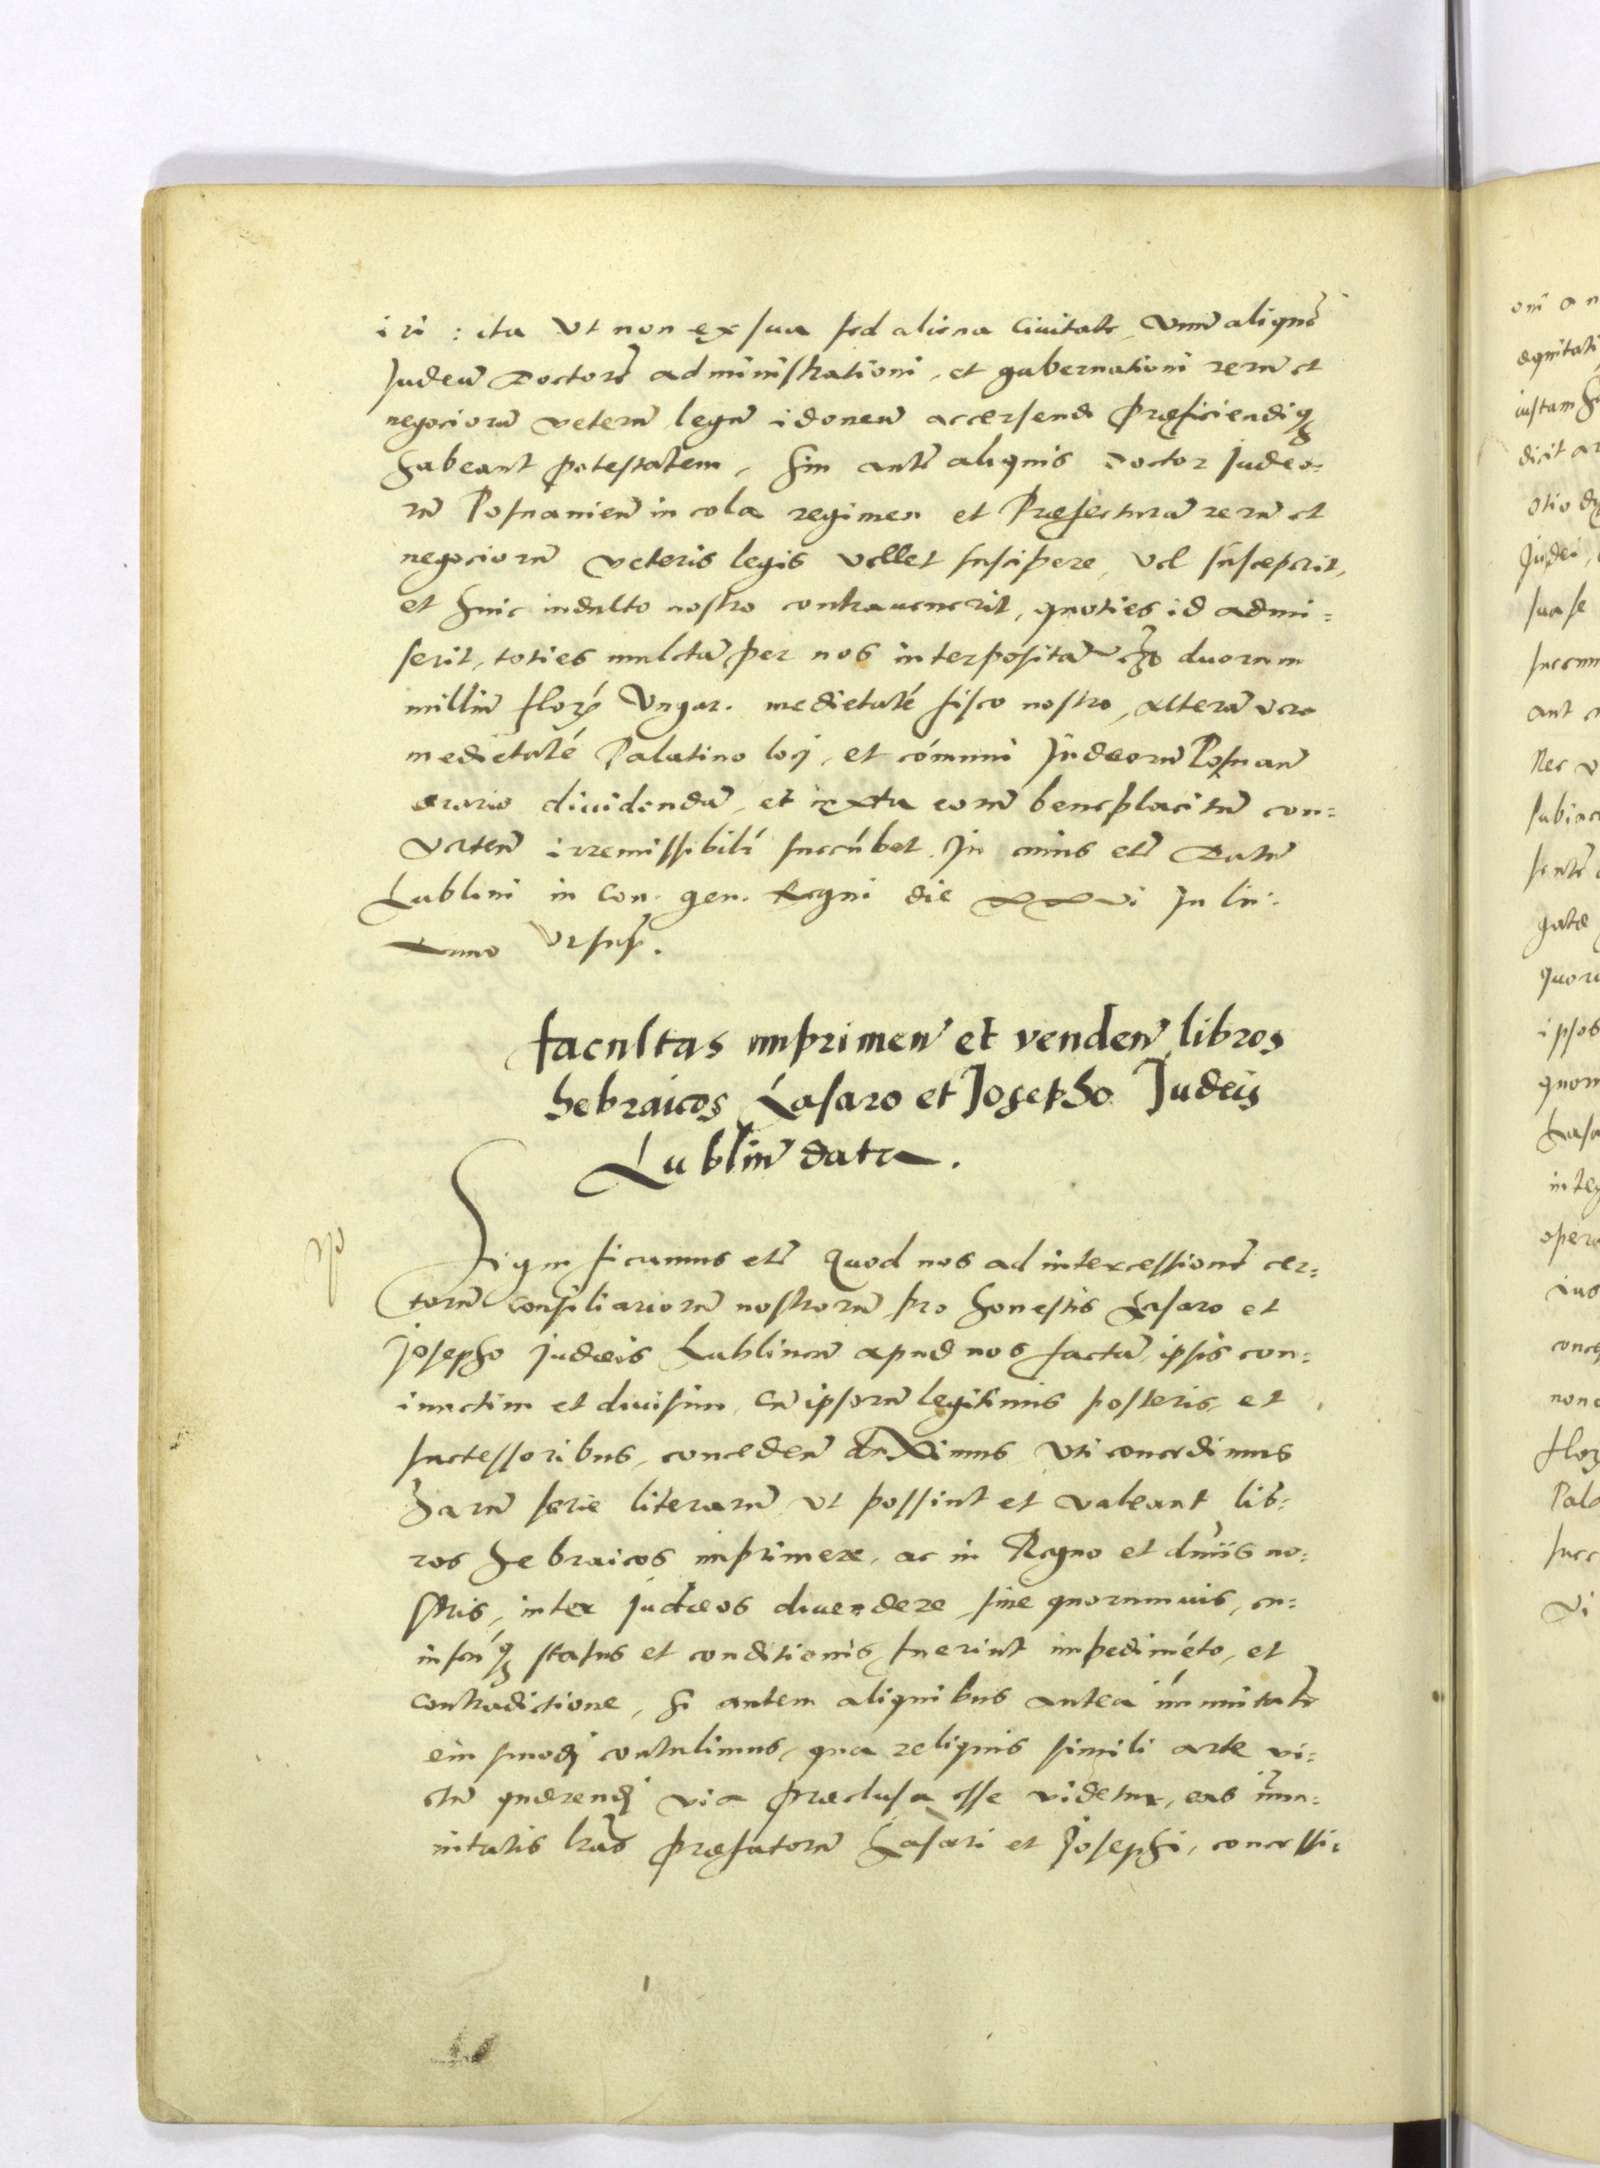 iri : ita vt non ex sua sed aliena Ciuitate, vnu͂ alique͂
Judeu͂ Doctore͂ administrationi, et gubernationi reru͂ et
negocioru͂ veteru͂ legu͂ idoneu͂ accersendi præficiendiq꜏
habeant potestatem, Sin aute͂ aliquis Doctor Judeo:
ru͂ Posnanien͂ incola regimen et Præfectura͂ reru͂ et
negocioru͂ veteris legis vellet suscipere, vel susceperit,
et huic indulto nostro contrauenerit, quoties id admi:
serit, toties mulcta͂ per nos interposita͂ duorum
milliu͂ flor͂ Vngar. medietate͂ fisco nostro, altera͂ vero
medietate͂ Palatino loci, et co͂muni Judæoru͂ Posnan͂
ærario diuidenda͂, et iuxta eoru͂ beneplacitu͂ con:
verten͂ irremissibil͂r succu͂bet. In cuius etc͂ Datu͂
Lublini in Con. gen. Regni die xxvi Julii.
Anno vt sup͂.
facultas imprimen͂ et venden͂ libros
hebraicos Lasaro et Josepho Judeis
Lublin͂ data.
Significamus etc͂ Quod nos ad intercessione͂ cer:
toru͂ consiliarioru͂ nostroru͂ pro honestis Lasaro et
Josepho Judæis Lublinen͂ apud nos facta͂, ipsis con:
iunctim et diuisim, cu͂ ipsoru͂ legitimis posteris, et
successoribus, conceden͂ duximus vti concedimus
haru͂ serie literaru͂, vt possint et valeant lib:
ros hebraicos imprimere, ac in Regno et dn͂iis no:
stris, inter judæos diuendere sine quorumuis, cu:
iuscu͂q꜏ status et conditionis fuerint impedime͂to, et
contradictione, Si autem aliquibus antea im͂unitate͂
eiusmodj contulimus, qua reliquis simili arte vi:
ctu͂ quærendj via præclusa esse videtur, eas im͂u:
nitatis lr͂as præfatoru͂ Lasari et Josephi, concessi: